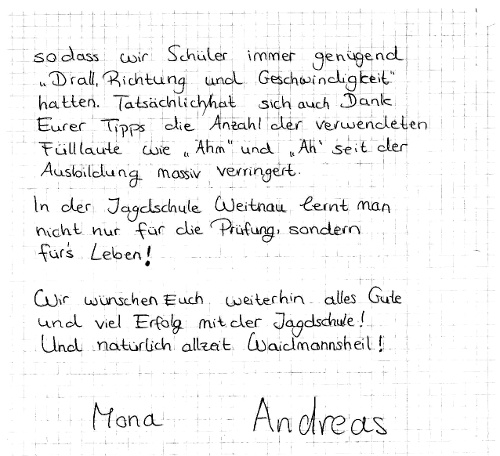 sodass wir Schüler immer genügend
„Drall, Richtung und Geschwindigkeit"
hatten. Tatsächlich hat sich auch Dank
Eurer Tipps die Anzahl der verwendeten
Füllaute wie „Ähm" und „Äh" seit der
Ausbildung massiv verringert.
In der Jagdschule Weitnau lernt man
nicht nur für die Prüfung, sondern
für's Leben!
Wir wünschen Euch weiterhin alles Gute
und viel Erfolg mit der Jagdschule!
Und natürlich allzeit Waidmannsheil!
Mona Andreas